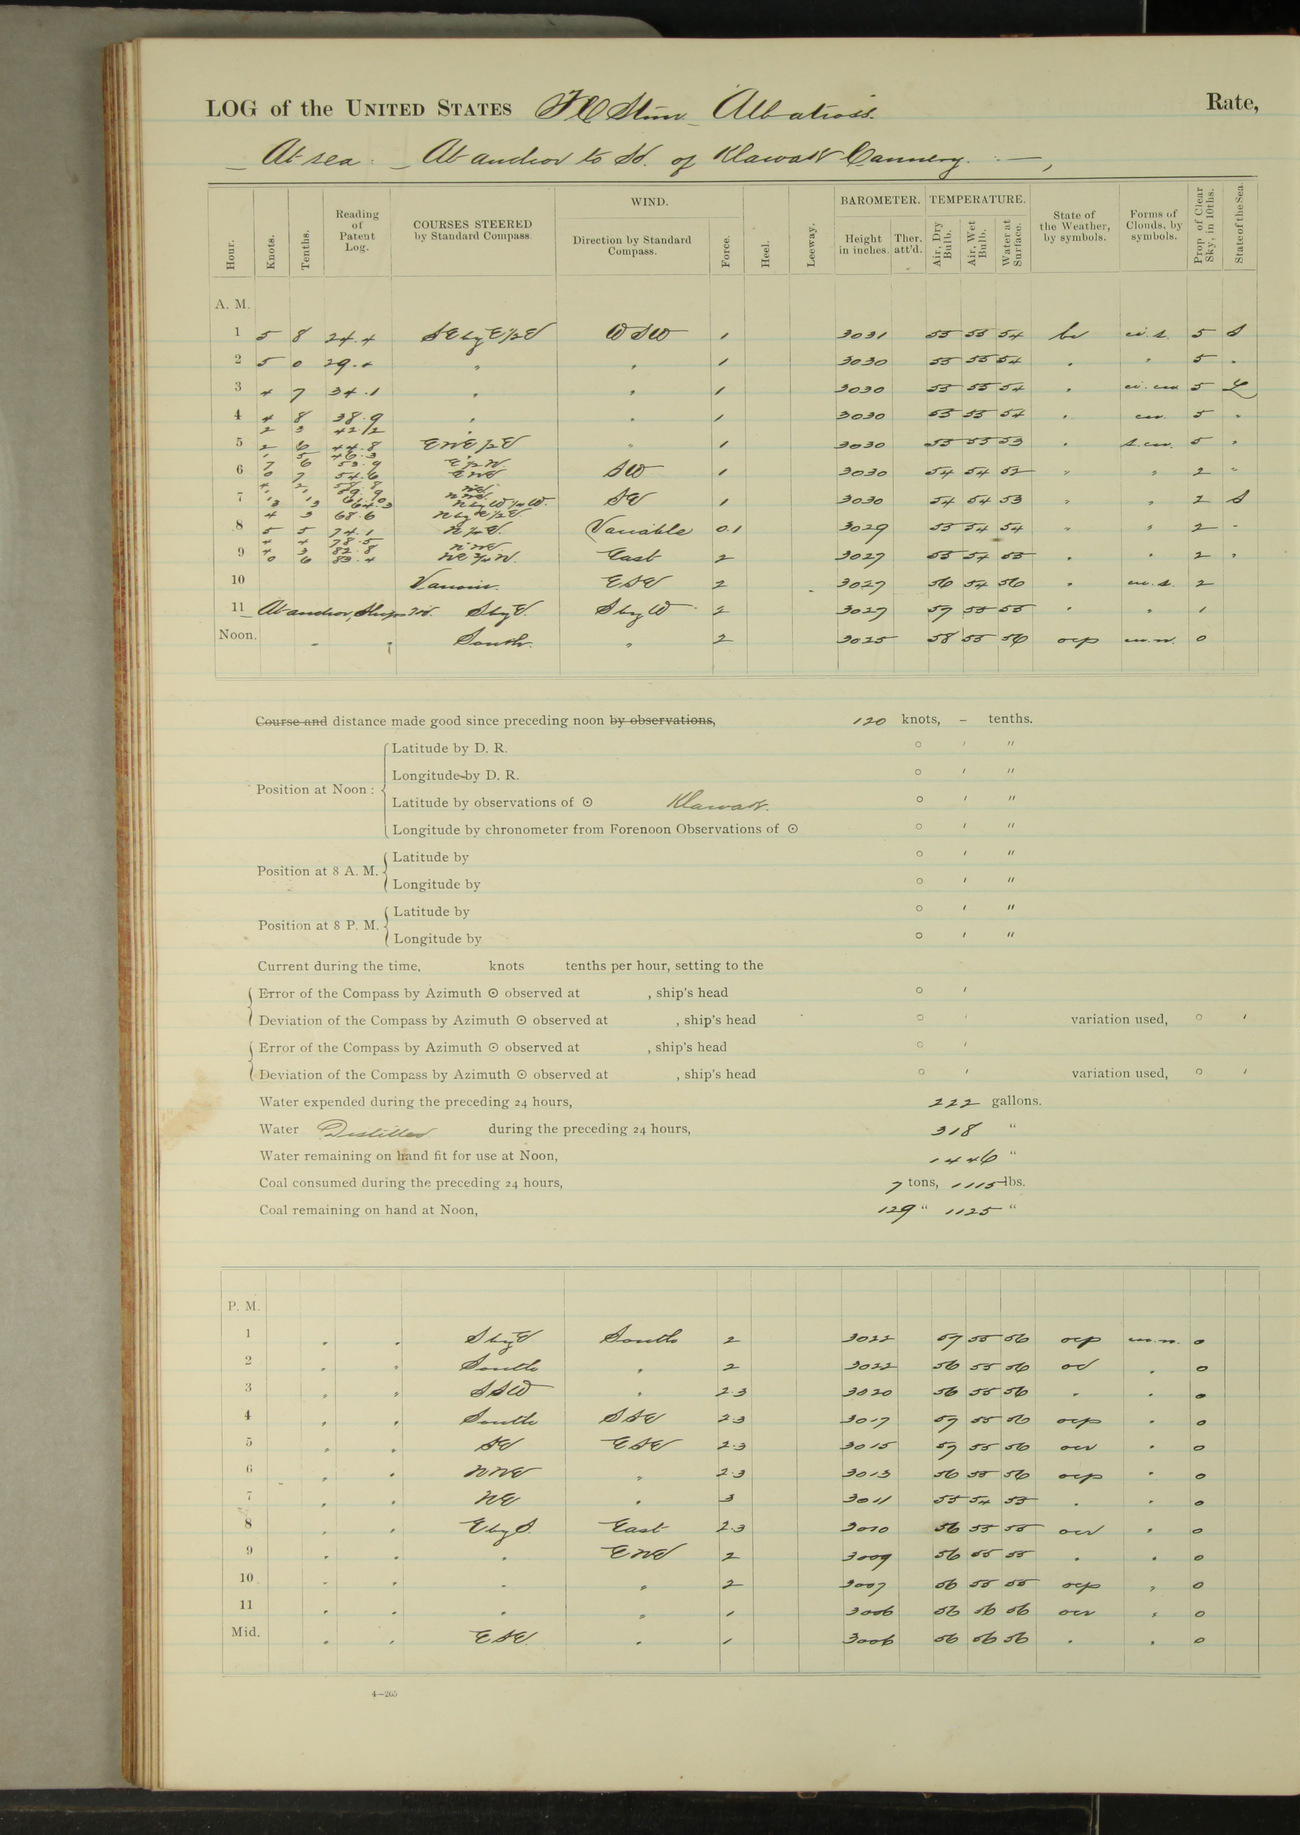 LOG of the UNITED STATES F.C. Stmr Albatross. Rate,
At sea. At anchor to Sd. of Klawak Cannery.
Hour. Knots. Tenths. Reading of Patent Log. COURSES STEERED by Standard Compass. WIND. Direction by Standard Compass. Force. Heel. Leeway. BAROMETER. Height in inches. Ther. att'd. TEMPERATURE. Air, Dry Bulb. Air, Wet Bulb. Water at Surface. State of the Weather, by symbols. Forms of Clouds, by symbols. Prop. of Clear Sky, in 10ths. State of the Sea.
A. M.
1 5 8 24.4 SE by E 1/2 E WSW 1 3031 55 55 54 bc ci.s. 5 S
2 5 0 29.4 " " 1 3030 55 55 54 " " 5 "
3 4 7 34.1 " " 1 3030 55 55 54 " ci.cu 5 L
4 4 8 38.9 " " 1 3030 55 55 54 " cu. 5 "
2 3 41 1/2
5 2 6 44.8 ENE 1/2 E " 1 3030 55 55 53 " s.cu. 5 "
1 5 46.3
6 7 6 53.9 E 1/2 N SW 1 3030 54 54 52 " " 2 "
0 7 54.6 ENE
7 N by W 1/4 W. SE 1 3030 54 54 53 " " 2 S
4 3 68.6 N by E 1/2 E
8 5 5 74.1 N 1/4 E. Variable 0.1 3029 55 54 54 " " 2 "
4 4 78.5 NNE
9 4 3 82.8 NE 3/4 N. East 2 3027 55 54 55 " " 2 "
0 6 83.4
10 Various. ESE 2 3027 56 54 56 " cu.s. 2
11 At anchor, Ship's Hd. S by E. S by W 2 3027 57 55 55 " " 1
Noon. " " South. " 2 3025 58 55 56 ocp cu.n. 0
Course and distance made good since preceding noon by observations, 120 knots, – tenths.
Position at Noon :
Latitude by D. R. ° ′ ″
Longitude by D. R. ° ′ ″
Latitude by observations of ☉ Klawak. ° ′ ″
Longitude by chronometer from Forenoon Observations of ☉ ° ′ ″
Position at 8 A. M.
Latitude by ° ′ ″
Longitude by ° ′ ″
Position at 8 P. M.
Latitude by ° ′ ″
Longitude by ° ′ ″
Current during the time, knots tenths per hour, setting to the
Error of the Compass by Azimuth ☉ observed at , ship's head ° ′
Deviation of the Compass by Azimuth ☉ observed at , ship's head ° ′ variation used, ° ′
Error of the Compass by Azimuth ☉ observed at , ship's head ° ′
Deviation of the Compass by Azimuth ☉ observed at , ship's head ° ′ variation used, ° ′
Water expended during the preceding 24 hours, 222 gallons.
Water Distilled during the preceding 24 hours, 318 "
Water remaining on hand fit for use at Noon, 1446 "
Coal consumed during the preceding 24 hours, 7 tons, 1115 lbs.
Coal remaining on hand at Noon, 129 " 1125 "
P. M.
1 " " S by E South 2 3022 57 55 56 ocp cu.n. 0
2 " " South " 2 3022 56 55 56 od " 0
3 " " SSW " 2.3 3020 56 55 56 " " 0
4 " " South SSE 2.3 3017 57 55 56 ocp " 0
5 " " SE ESE 2.3 3015 57 55 56 ocr " 0
6 " " NNE " 2.3 3013 56 55 56 ocp " 0
7 " " NE " 3 3011 55 54 55 " " 0
8 " " E by S. East 2.3 3010 56 55 55 ocr " 0
9 " " " ENE 2 3009 56 55 55 " " 0
10 " " " " 2 3007 56 55 55 ocp " 0
11 " " " " 1 3006 56 56 56 ocr " 0
Mid. " " ESE " 1 3006 56 56 56 " " 0
4—265